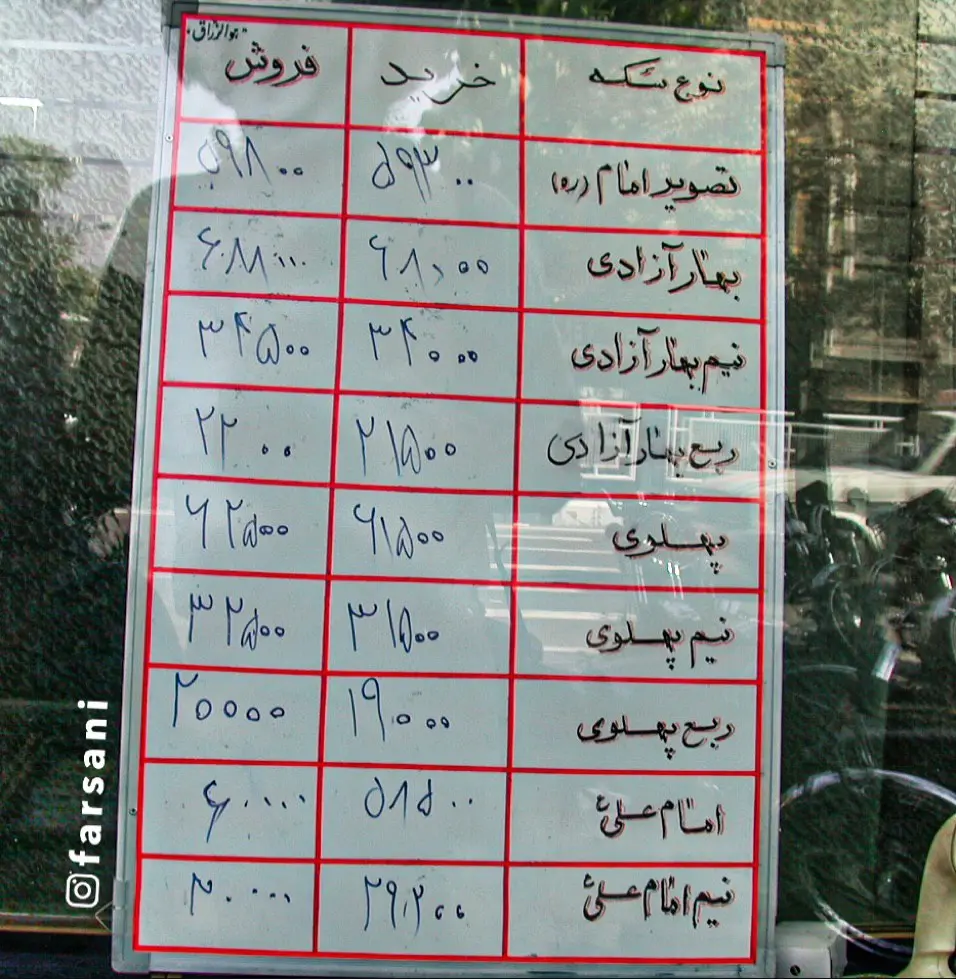 هوالرزاق
نوع سکه خرید فروش
تصویر امام (ره) ۵۹۳۰۰ ۵۹۸۰۰
بهار آزادی ۶۸۰۰۰ ۶۸۸۰۰۰
نیم بهار آزادی ۳۴۰۰۰ ۳۴۵۰۰
ربع بهار آزادی ۲۱۵۰۰ ۲۲۰۰
پهلوی ۶۱۵۰۰ ۶۲۵۰۰
نیم پهلوی ۳۱۵۰۰ ۳۲۵۰۰
ربع پهلوی ۱۹۰۰۰ ۲۰۰۰۰
امام علی ۵۸۵۰۰ ۶۰۰۰۰
نیم امام علی ۲۹۲۰۰
farsani